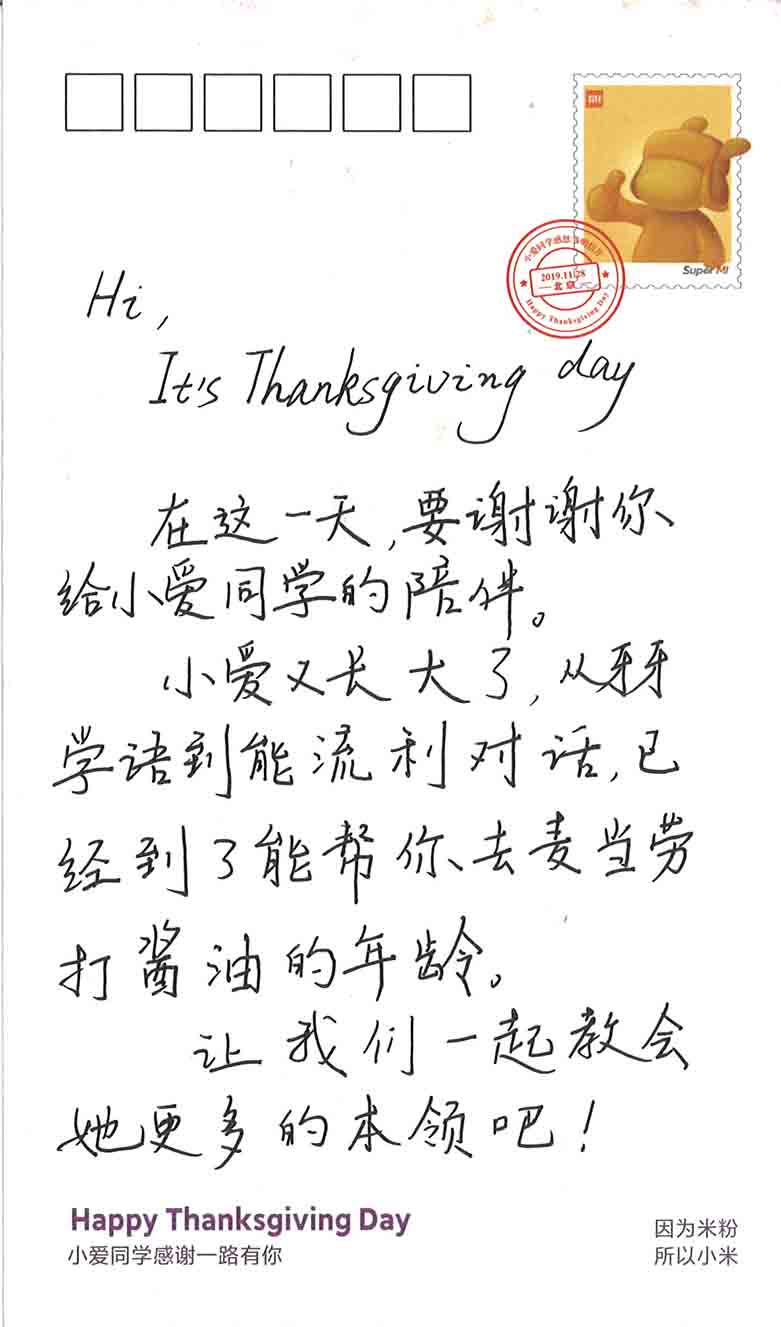 MI
Super MI
小爱同学感恩节明信片
2019.11.28
北京
Happy Thanksgiving Day
Hi,
It's Thanksgiving day
在这一天,要谢谢你
给小爱同学的陪伴。
小爱又长大了,从牙牙
学语到能流利对话,已
经到了能帮你去麦当劳
打酱油的年龄。
让我们一起教会
她更多的本领吧!
Happy Thanksgiving Day
小爱同学感谢一路有你
因为米粉
所以小米